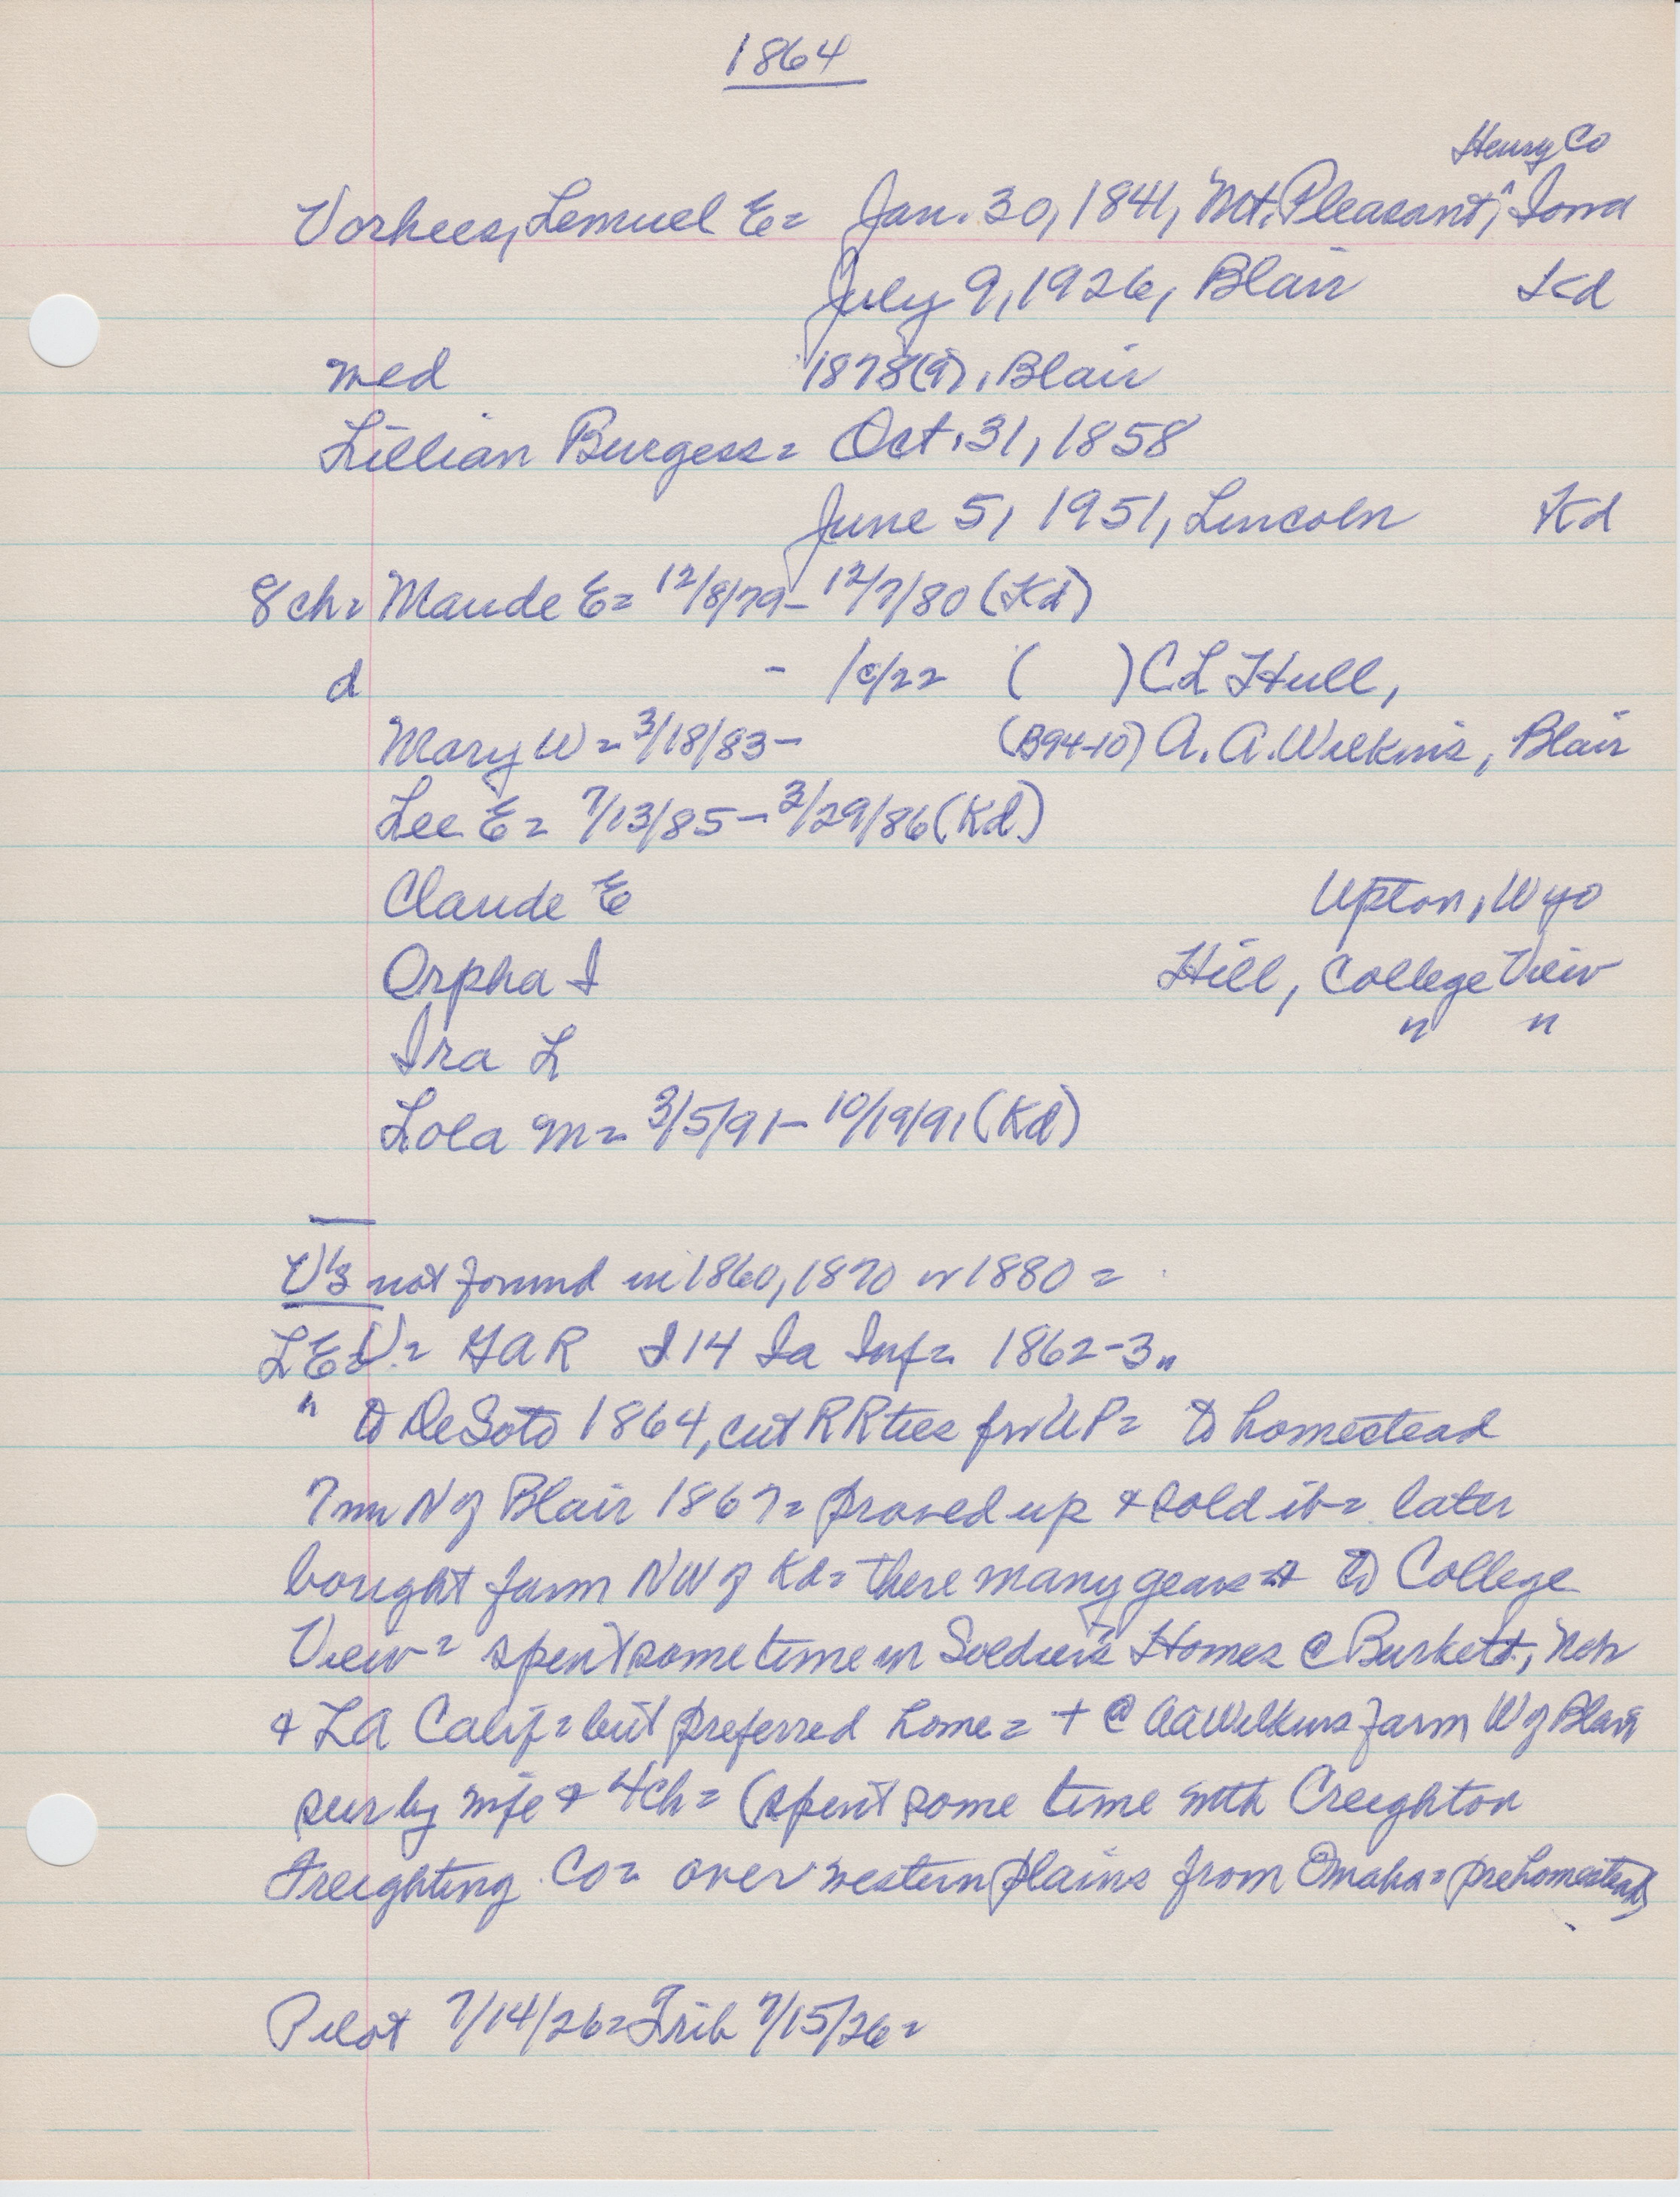 1864
Henry Co
Vorhees, Lemuel E= Jan. 30, 1841, Mt. Pleasant,^ Iowa
July 9, 1926, Blair Kd
med 1878(9), Blair
Lillian Burgess= Oct. 31, 1858
June 5, 1951, Lincoln Kd
8 ch= Maude E= 12/8/79- 12/7/80 (Kd)
d - 10/22 ( ) C L Hull,
Mary W= 3/18/83- (B94-10) A. A. Wilkins, Blair
Lee E= 7/13/85- 3/29/86 (Kd)
Claude E Upton, Wyo
Orpha I Hill, College View
Ira L " "
Lola M= 3/5/91- 10/19/91 (Kd)
V's not found in 1860, 1870 or 1880=
LEV= GAR I 14 Ia Inf= 1862-3=
" to DeSoto 1864, cut RR ties for UP= to homestead
7 mi N of Blair 1867= proved up & sold it= later
bought farm NW of Kd= there many years to College
View= spent some time in Soldiers Homes @ Burkett, Neb
& LA Calif= but preferred home= + @ AA Wilkins farm W of Blair
sur by wife & 4 ch= (spent some time with Creighton
Freighting Co= over western plains from Omaha= prehomestead)
Pilot 7/14/26= Trib 7/15/26=